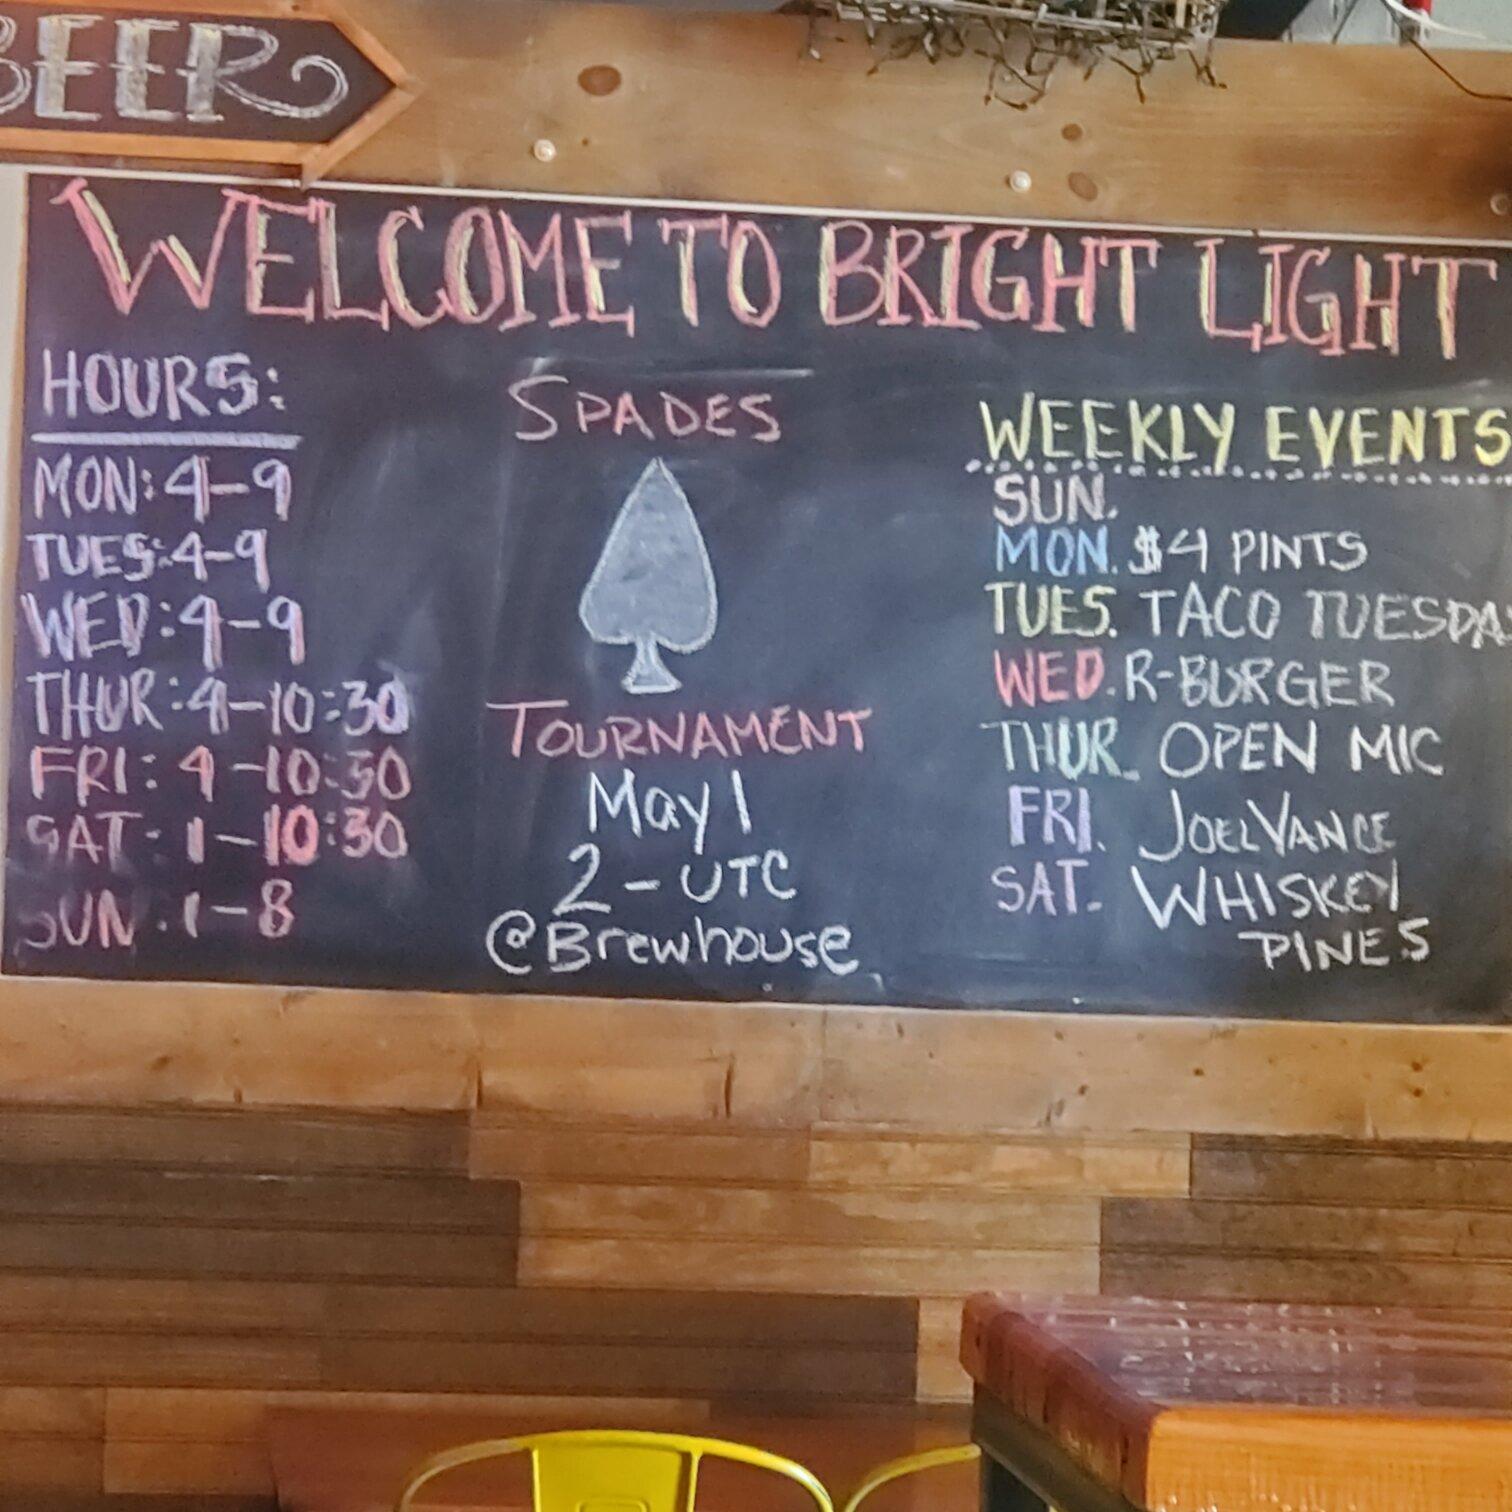 BEER
WELCOME TO BRIGHT LIGHT
HOURS:
MON: 4-9
TUES: 4-9
WED: 4-9
THUR: 4-10:30
FRI: 4-10:30
SAT- 1-10:30
SUN. 1-8
SPADES
TOURNAMENT
May 1
2-UTC
@Brewhouse
WEEKLY EVENTS
SUN.
MON. $4 PINTS
TUES. TACO TUESDA
WED. R-BURGER
THUR. OPEN MIC
FRI. JOEL VANCE
SAT. WHISKEY
PINES